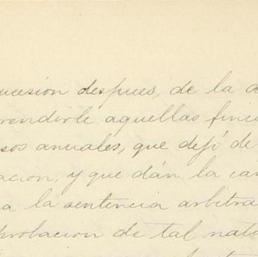 ucesion despues, de la a
rendirle aquellas finc
sos anuales, que dejó de
acion, y que dán la can
a la sentencia arbitra
probacion de tal natu